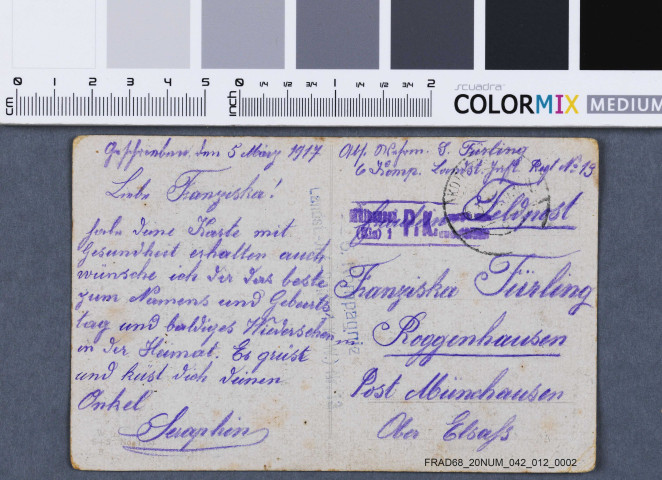 0 1 2 3 4 5
cm
0 1/4 1/2 3/4 1 1/4 1/2 3/4 2
inch
scuadra
COLORMIX MEDIUM
Geschrieben den 5 März 1917
Liebe Franziska!
habe deine Karte mit
Gesundheit erhalten auch
wünsche ich der das beste
zum Namens und Geburts
tag und baldiges Wiedersehen
in der Heimat. Es grüst
und küst dich deinen
Onkel
Seraphin
Abs. S. Fürling
6 Komp. Landst. Inft. Regt No 13
Feldpost
P.K.
Franziska Fürling
in Roggenhausen
Post Münchausen
Ober Elsaß
FRAD68_20NUM_042_012_0002